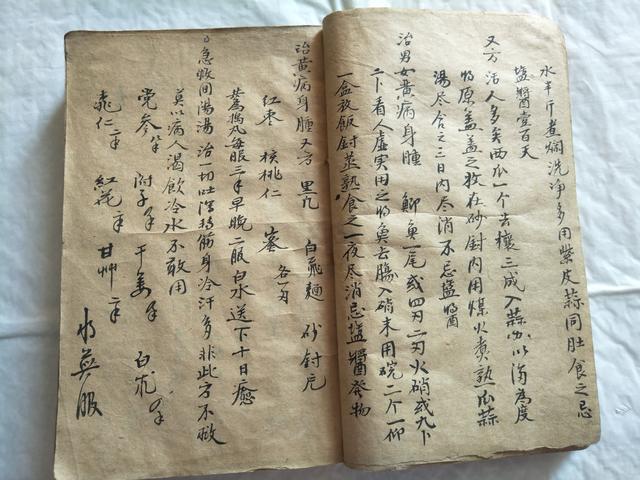 水半斤煮爛洗净多用紫皮蒜同肚食之忌
盐醬壹百天
又方 活人多矣西瓜一个去穰三成入蒜 以满為度
将原盖盖之放在砂封内用煤火煮熟瓜蒜
湯尽食之三日内尽消不忌盐醬
治男女黄病身腫 鯽魚一尾或四刃二刃火硝或九卜
二卜看人虚实用之将魚去腸入硝末用碗二个一仰
一盒放飯封蒸熟食之一夜尽消忌盐醬發物
治黄病身腫又方 黑凢 白飛麺 砂封
紅枣 核桃仁 各一刃
為丸每服三 早晚二服白水送下十日癒
急 間陽湯 治一切吐 转筋身冷汗多非此方不救
莫以病人渴飲冷水不敢用
党参 附子 干姜 白
桃仁 紅花 甘艸 水煎服